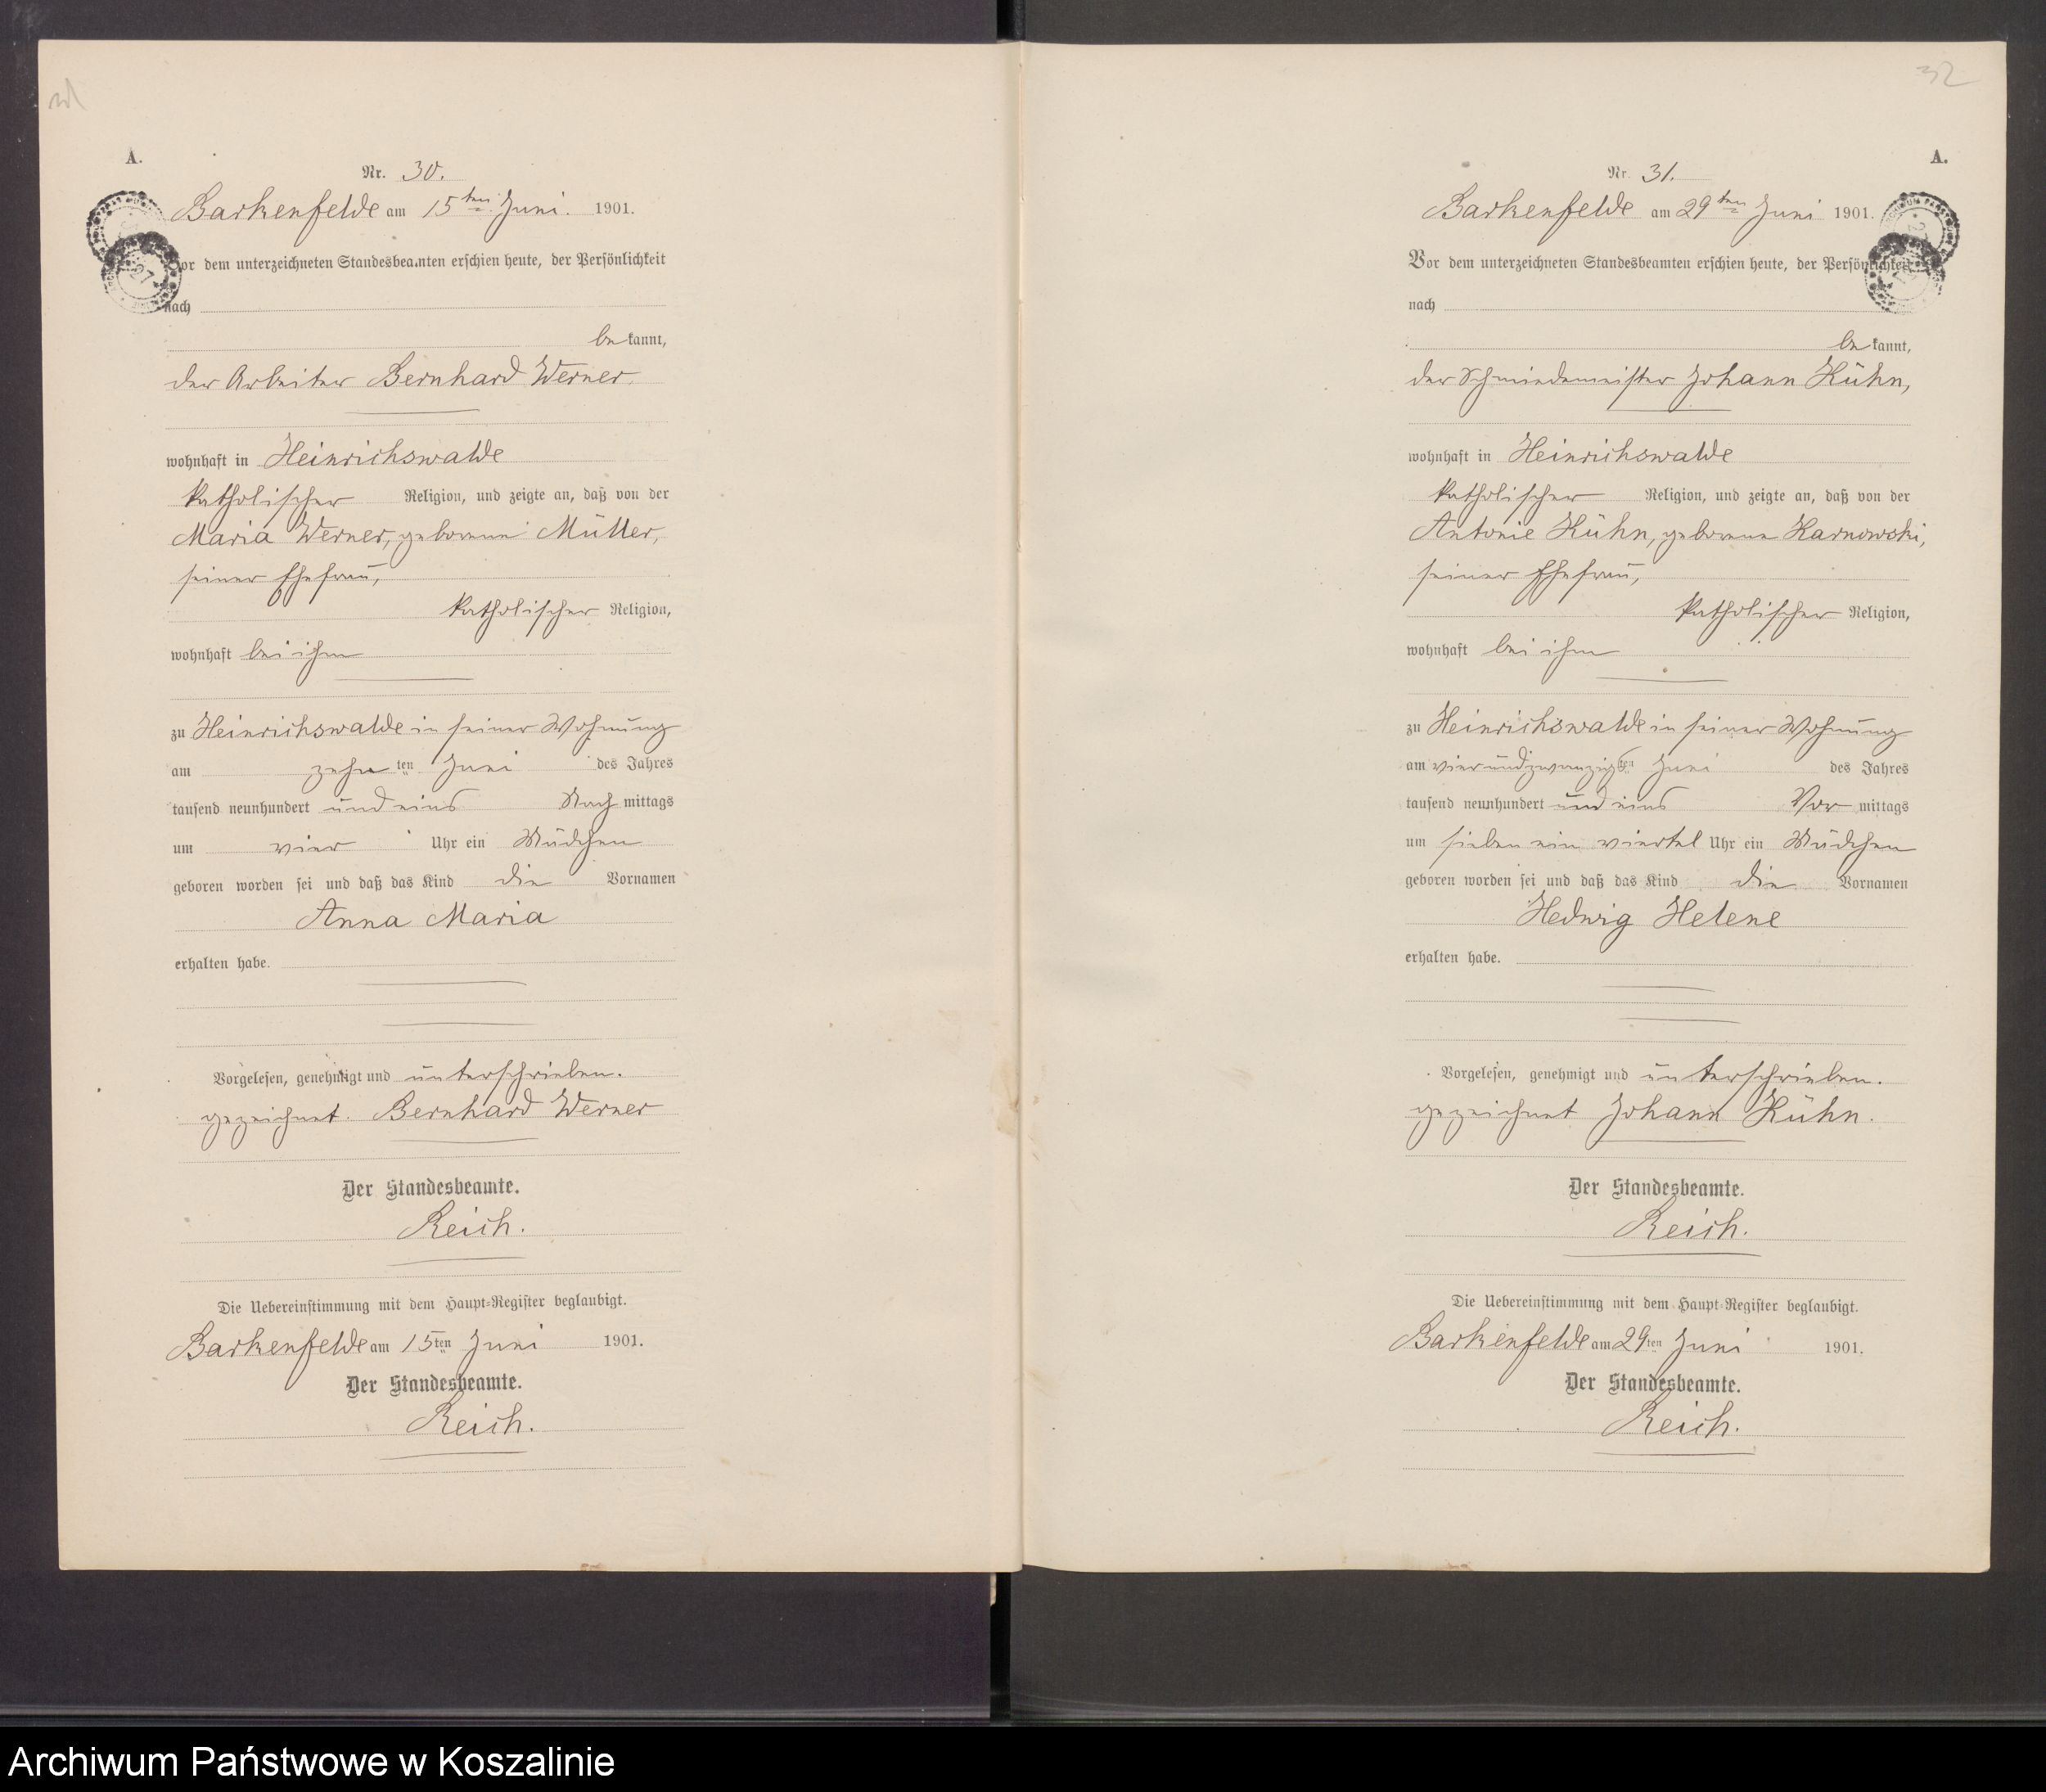 A.
Nr. 30.
Barkenfelde am 15ten Juni. 1901.
Vor dem unterzeichneten Standesbeamten erschien heute, der Persönlichkeit
nach
be kannt,
der Arbeiter Bernhard Werner,
wohnhaft in Heinrichswalde
katholischer Religion, und zeigte an, daß von der
Maria Werner, geborene Müller,
seiner Ehefrau,
katholischer Religion,
wohnhaft bei ihm
zu Heinrichswalde in seiner Wohnung
am zehnten Juni des Jahres
tausend neunhundert und eins Nach mittags
um vier Uhr ein Mädchen
geboren worden sei und daß das Kind die Vornamen
Anna Maria
erhalten habe.
Vorgelesen, genehmigt und unterschrieben.
gezeichnet. Bernhard Werner
Der Standesbeamte.
Reich.
Die Uebereinstimmung mit dem Haupt-Register beglaubigt.
Barkenfelde am 15ten Juni 1901.
Der Standesbeamte.
Reich.
32
A.
Nr. 31.
Barkenfelde am 29ten Juni 1901.
Vor dem unterzeichneten Standesbeamten erschien heute, der Persönlichkeit
nach
be kannt,
der Schmiedemeister Johann Kühn,
wohnhaft in Heinrichswalde
katholischer Religion, und zeigte an, daß von der
Antonie Kühn, geborene Karnowski,
seiner Ehefrau,
katholischer Religion,
wohnhaft bei ihm
zu Heinrichswalde in seiner Wohnung
am vierundzwanzigsten Juni des Jahres
tausend neunhundert und eins Vor mittags
um sieben ein viertel Uhr ein Mädchen
geboren worden sei und daß das Kind die Vornamen
Hedwig Helene
erhalten habe.
Vorgelesen, genehmigt und unterschrieben.
gezeichnet Johann Kühn.
Der Standesbeamte.
Reich.
Die Uebereinstimmung mit dem Haupt-Register beglaubigt.
Barkenfelde am 29ten Juni 1901.
Der Standesbeamte.
Reich.
Archiwum Państwowe w Koszalinie